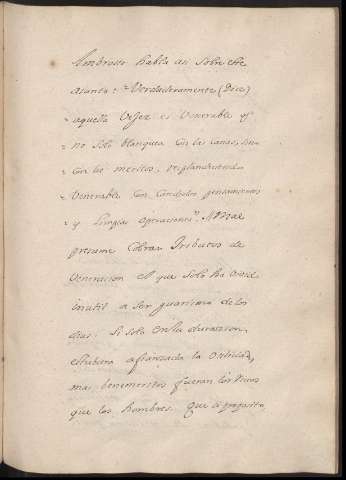 Ambrosio habla asi sobre este
asunto: "Verdaderamente (Dice)
" aquella Vejez es Venerable q.e
" no solo blanquea con las canas, sino
" con los meritos, resplandeciendo
" Venerable con Candidos pensamientos
" y Limpias operaciones". Mal
presume Cobrar Tributos de
Veneracion el que solo ha
inutil a ser guarismo de los
dias. Si solo en la duracion,
estubiera afianzada la
mas benemeritos fueran los
que los hombres. Que a proposito